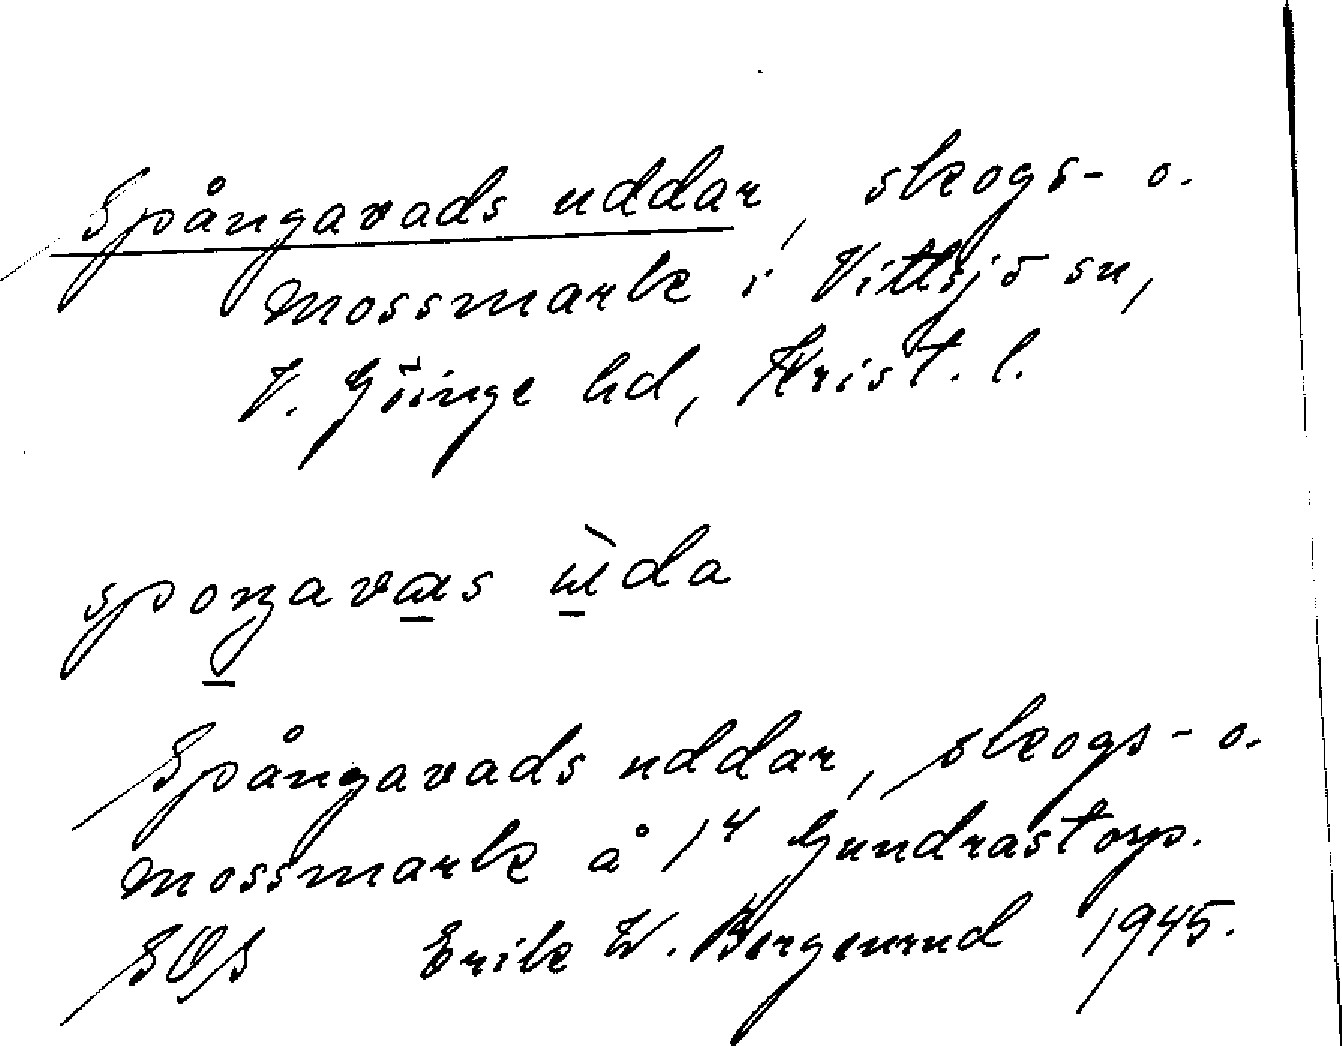 Spångavads uddar, skogs- o.
mossmark i Vittsjö sn,
V. Göinge hd, Krist. l.
Spångavads uddar, skogs- o.
mossmark å 1⁴ Gundrastorp.
SOS Erik W. 1945.